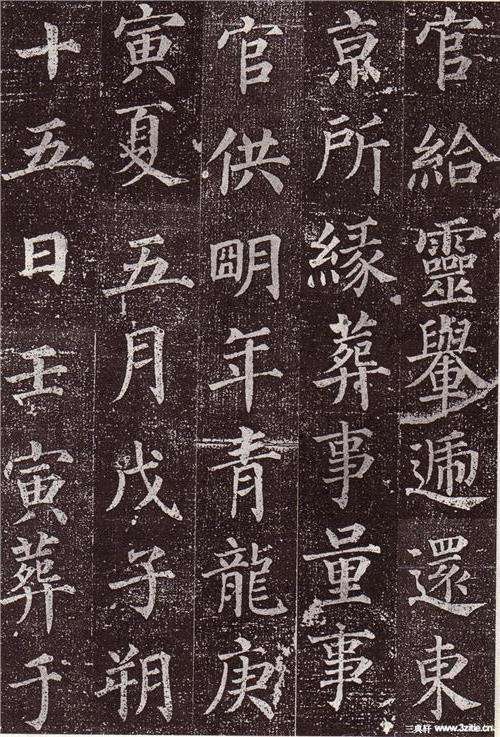 官給靈轝遞還東
京所緣葬事量事
官供明年青龍庚
寅夏五月戊子朔
十五日壬寅葬于
三贞轩 www.3zitie.cn